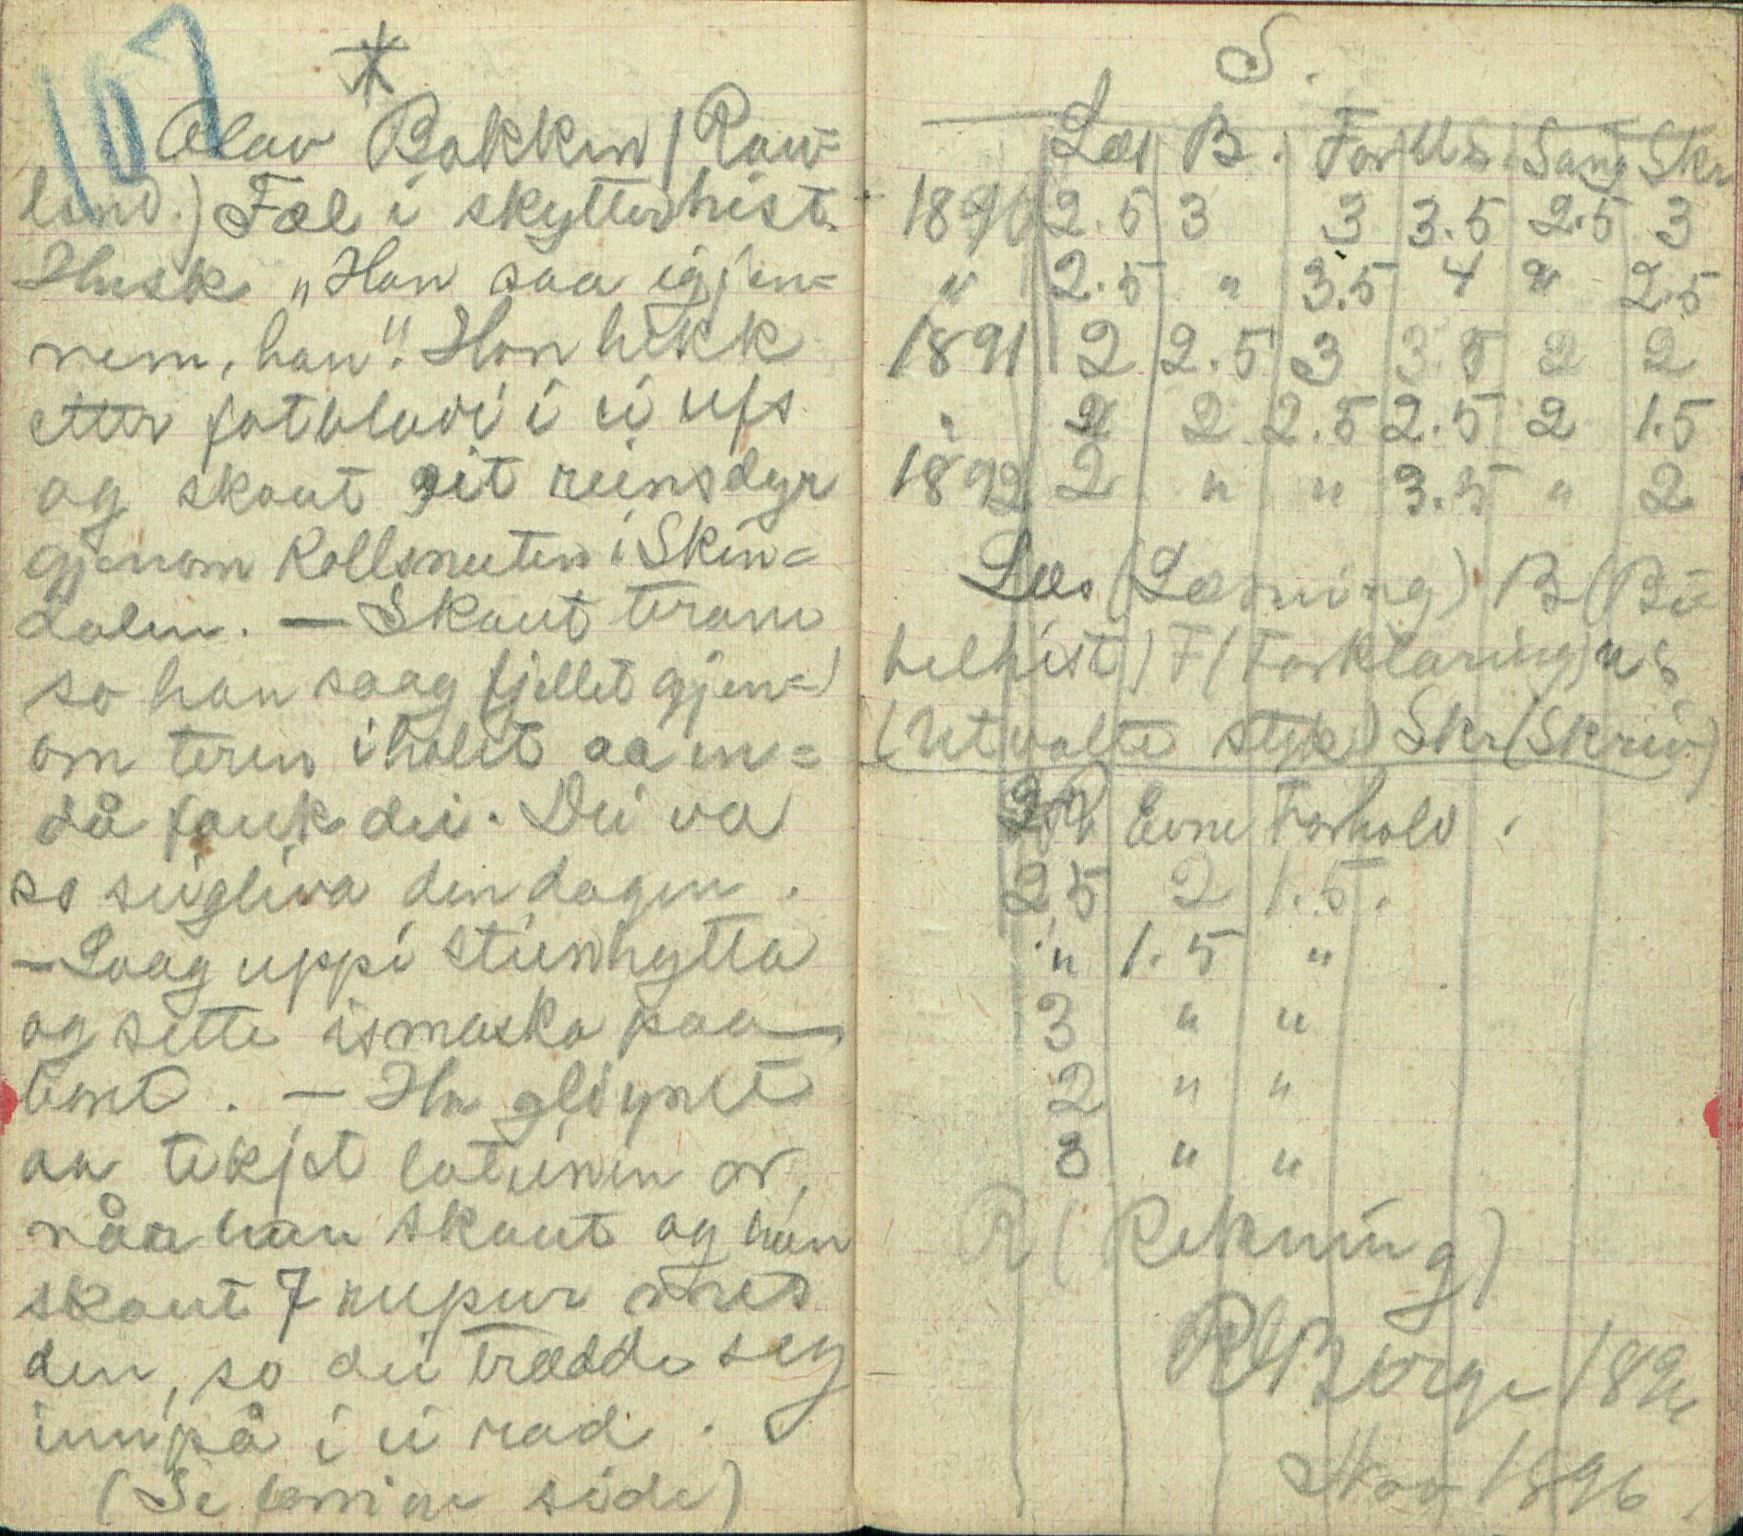 107
Olav Bakken (Rau=
land.) Fæl i skytterhist.
Husk „Han saa igjen=
nem, han". Han hekk
etter fotbladi i ei ufs
og skaut eit reinsdyr
gjenom Kollsnuten i Skin=
dalen. — Skaut teram
so han saag fjellet gjen=
om teren i holet aa en=
då fauk dei. Dei va
so seigliva den dagen.
— Laag uppi steinhytta
og sette ismaska paa
vant. — Ha gløymt
aa tekjst latunen or,
når han skaut og han
skaut 7 rupur med
den, so dei trædde seg
innpå i ei rad.
(Se femi ne side)
S.
Læs B. For US. Sang Skr
1890 2.5 3 3 3.5 2.5 3
" 2.5 " 3.5 4 " 2.5
1891 2 2.5 3 3.5 2 2
" 2 2 2.5 2.5 2 1.5
1892 2 " " 3.5 " 2
Læs (Læsning) B (Bi=
belhist) F (Forklaring) us
(Utvalte styk) Skr (Skriv)
R Evne Forhold.
2.5 2 1.5.
" 1.5 "
3 " "
2 " "
3 " "
R (Rekning)
R Berge 189
1896